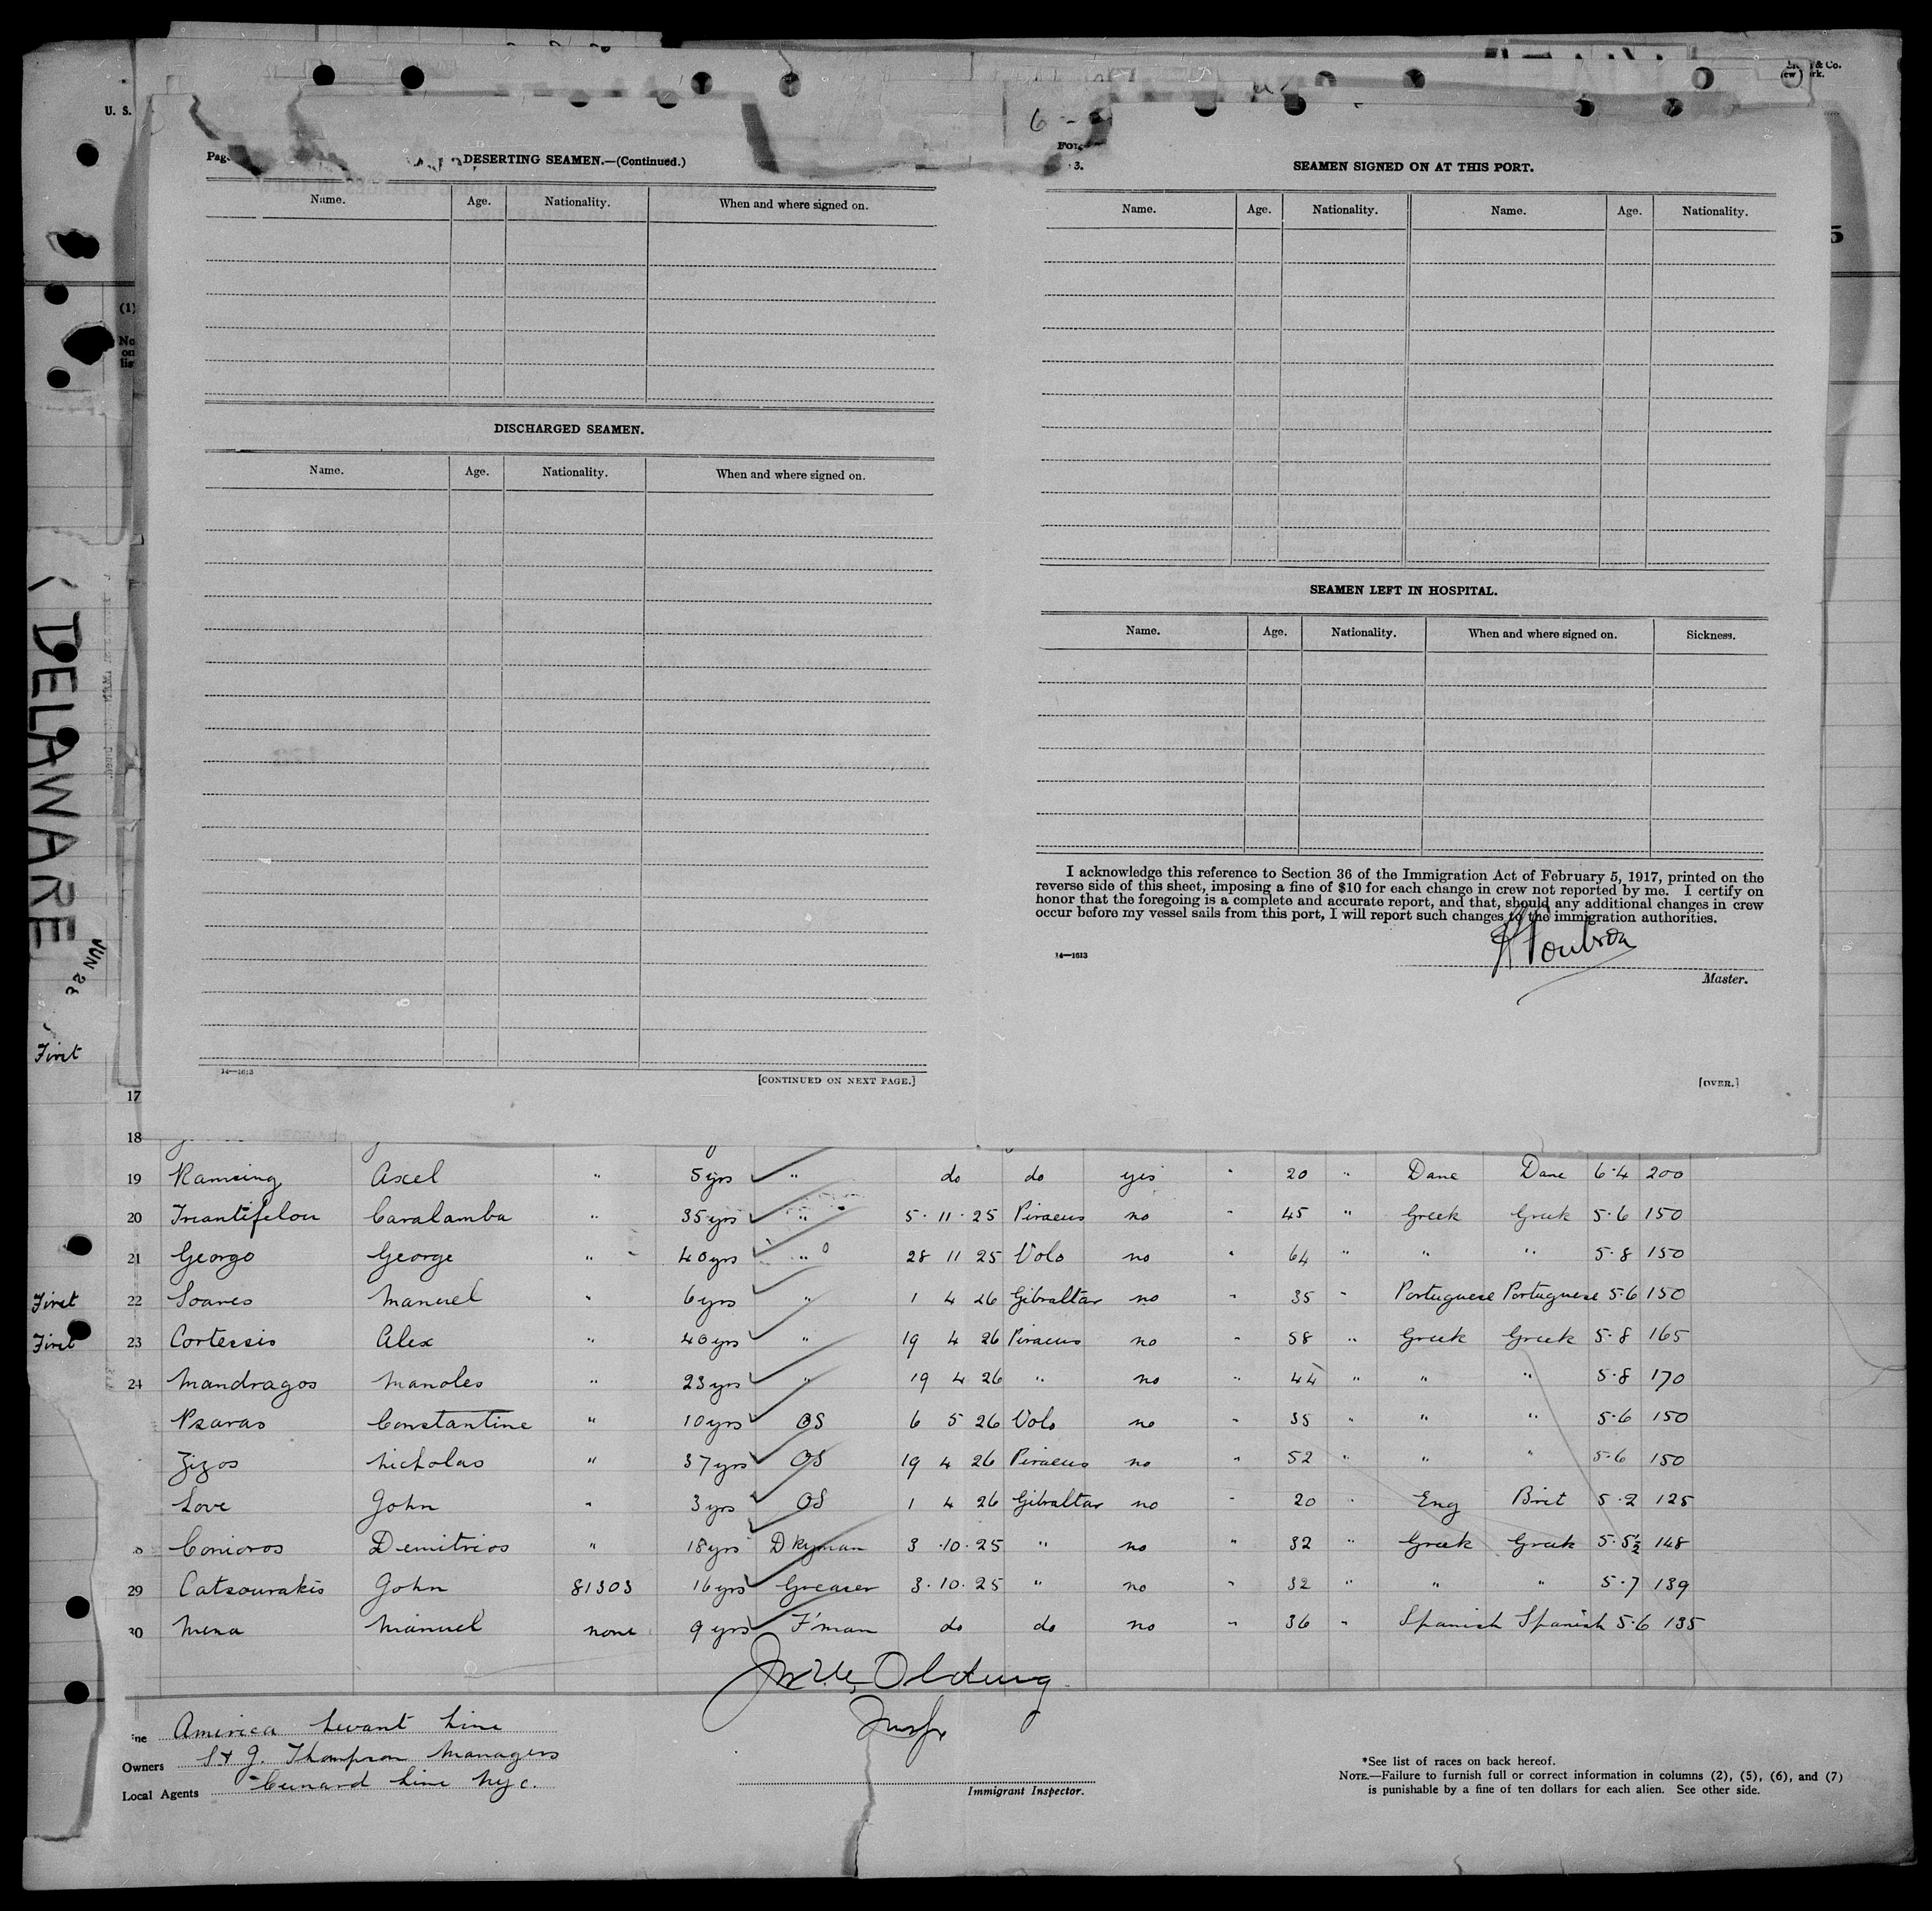 U. S.
& Co.
rk.
6 -
3.
DESERTING SEAMEN.—(Continued.)
Name. Age. Nationality. When and where signed on.
DISCHARGED SEAMEN.
Name. Age. Nationality. When and where signed on.
14—1613
[CONTINUED ON NEXT PAGE.]
SEAMEN SIGNED ON AT THIS PORT.
Name. Age. Nationality. Name. Age. Nationality.
SEAMEN LEFT IN HOSPITAL.
Name. Age. Nationality. When and where signed on. Sickness.
I acknowledge this reference to Section 36 of the Immigration Act of February 5, 1917, printed on the
reverse side of this sheet, imposing a fine of $10 for each change in crew not reported by me. I certify on
honor that the foregoing is a complete and accurate report, and that, should any additional changes in crew
occur before my vessel sails from this port, I will report such changes to the immigration authorities.
14—1613
Master.
[OVER.]
5
(1)
DELAWARE
JUN 26
First
17
18
19 Ramsing Axel " 5 yrs " do do yes " 20 " Dane Dane 6·4 200
20 Triantifelou Caralamba " 35 yrs " 5·11·25 Piraeus no " 45 " Greek Greek 5·6 150
21 Georgo George " 40 yrs " 28 11 25 Volo no " 64 " " " 5·8 150
First 22 Soares Manuel " 6 yrs " 1 4 26 Gibraltar no " 35 " Portuguese Portuguese 5·6 150
First 23 Cortessis Alex " 40 yrs " 19 4 26 Piraeus no " 58 " Greek Greek 5·8 165
24 Mandragos Manoles " 23 yrs " 19 4 26 " no " 44 " " " 5·8 170
Psaras Constantine " 10 yrs OS 6 5 26 Volo no " 35 " " " 5·6 150
Zizos Nicholas " 37 yrs OS 19 4 26 Piraeus no " 52 " " " 5·6 150
Love John " 3 yrs OS 1 4 26 Gibraltar no " 20 " Eng Brit 5·2 125
Conioros Demitrios " 18 yrs Dkyman 3·10·25 " no " 32 " Greek Greek 5·5½ 148
29 Catsourakis John 81303 16 yrs Greaser 3·10·25 " no " 32 " " " 5·7 139
30 Mena Manuel none 9 yrs F'man do do no " 36 " Spanish Spanish 5·6 135
America Levant Line
Owners S & J. Thompson Managers
Local Agents Cunard Line N.Y.C.
Immigrant Inspector.
*See list of races on back hereof.
NOTE.—Failure to furnish full or correct information in columns (2), (5), (6), and (7)
is punishable by a fine of ten dollars for each alien. See other side.